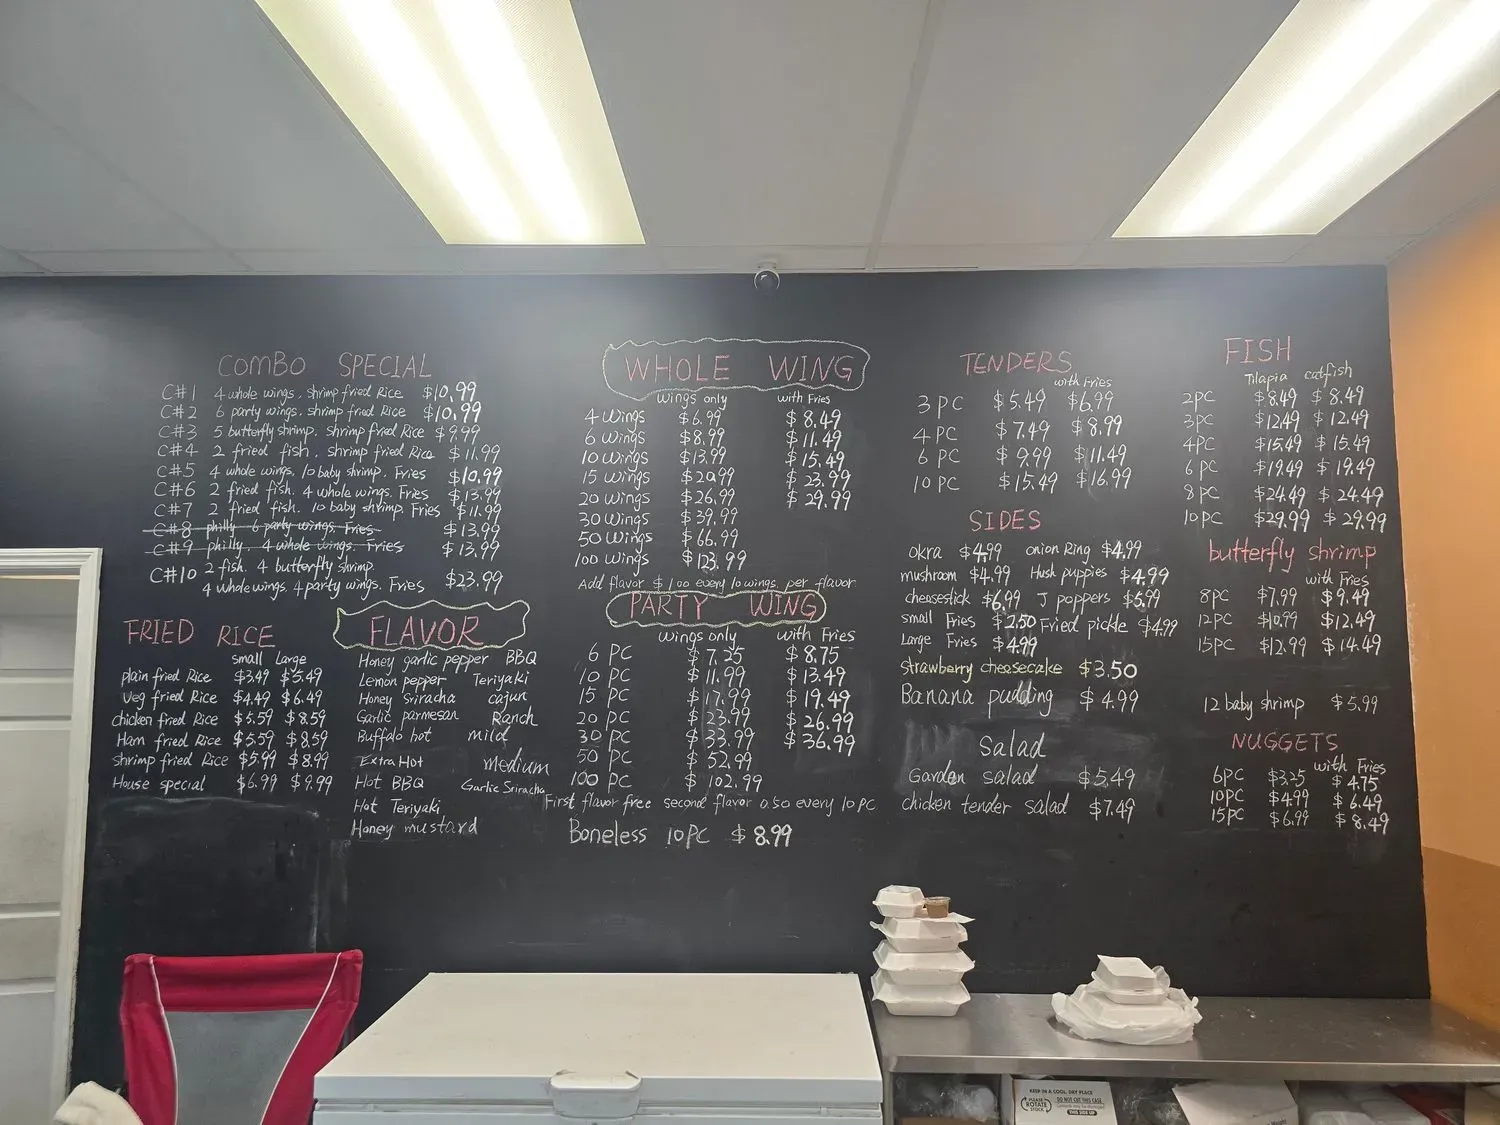 ComBo SPECIAL
C#1 4 whole wings. shrimp fried Rice $10.99
C#2 6 party wings. shrimp fried Rice $10.99
C#3 5 butterfly shrimp. shrimp fried Rice $9.99
C#4 2 fried fish. shrimp fried Rice $11.99
C#5 4 whole wings. 10 baby shrimp. Fries $10.99
C#6 2 fried fish. 4 whole wings. Fries $13.99
C#7 2 fried fish. 10 baby shrimp. Fries $11.99
C#8 philly 6 party wings. Fries $13.99
C#9 philly. 4 whole wings. Fries $13.99
C#10 2 fish. 4 butterfly shrimp.
4 whole wings. 4 party wings. Fries $23.99
FRIED RICE
small Large
plain fried Rice $3.49 $5.49
Veg fried Rice $4.49 $6.49
chicken fried Rice $5.59 $8.59
Ham fried Rice $5.59 $8.59
shrimp fried Rice $5.99 $8.99
House special $6.99 $9.99
FLAVOR
Honey garlic pepper BBQ
Lemon pepper Teriyaki
Honey Sriracha cajun
Garlic parmesan Ranch
Buffalo hot mild
Extra Hot medium
Hot BBQ Garlic Sriracha
Hot Teriyaki
Honey mustard
WHOLE WING
wings only with Fries
4 wings $6.99 $8.49
6 wings $8.99 $11.49
10 wings $13.99 $15.49
15 wings $20.99 $23.99
20 wings $26.99 $29.99
30 wings $39.99
50 wings $66.99
100 wings $123.99
Add flavor $1.00 every 10 wings. per flavor
PARTY WING
wings only with Fries
6 PC $7.25 $8.75
10 PC $11.99 $13.49
15 PC $17.99 $19.49
20 PC $23.99 $26.99
30 PC $33.99 $36.99
50 PC $52.99
100 PC $102.99
First flavor free second flavor 0.50 every 10 PC
Boneless 10 PC $8.99
TENDERS
with Fries
3 PC $5.49 $6.99
4 PC $7.49 $8.99
6 PC $9.99 $11.49
10 PC $15.49 $16.99
SIDES
okra $4.99 onion Ring $4.99
mushroom $4.99 Hush puppies $4.99
cheesestick $6.99 J poppers $5.99
small Fries $2.50 Fried pickle $4.99
Large Fries $4.99
strawberry cheesecake $3.50
Banana pudding $4.99
Salad
Garden salad $5.49
chicken tender salad $7.49
FISH
Tilapia catfish
2PC $8.49 $8.49
3PC $12.49 $12.49
4PC $15.49 $15.49
6 PC $19.49 $19.49
8 PC $24.49 $24.49
10 PC $29.99 $29.99
butterfly shrimp
with Fries
8PC $7.99 $9.49
12PC $10.99 $12.49
15PC $12.99 $14.49
12 baby shrimp $5.99
NUGGETS
with Fries
6PC $3.25 $4.75
10PC $4.99 $6.49
15PC $6.99 $8.49
KEEP IN A COOL, DRY PLACE
PLEASE ROTATE STOCK
DO NOT CUT THIS CASE
THIS SIDE UP